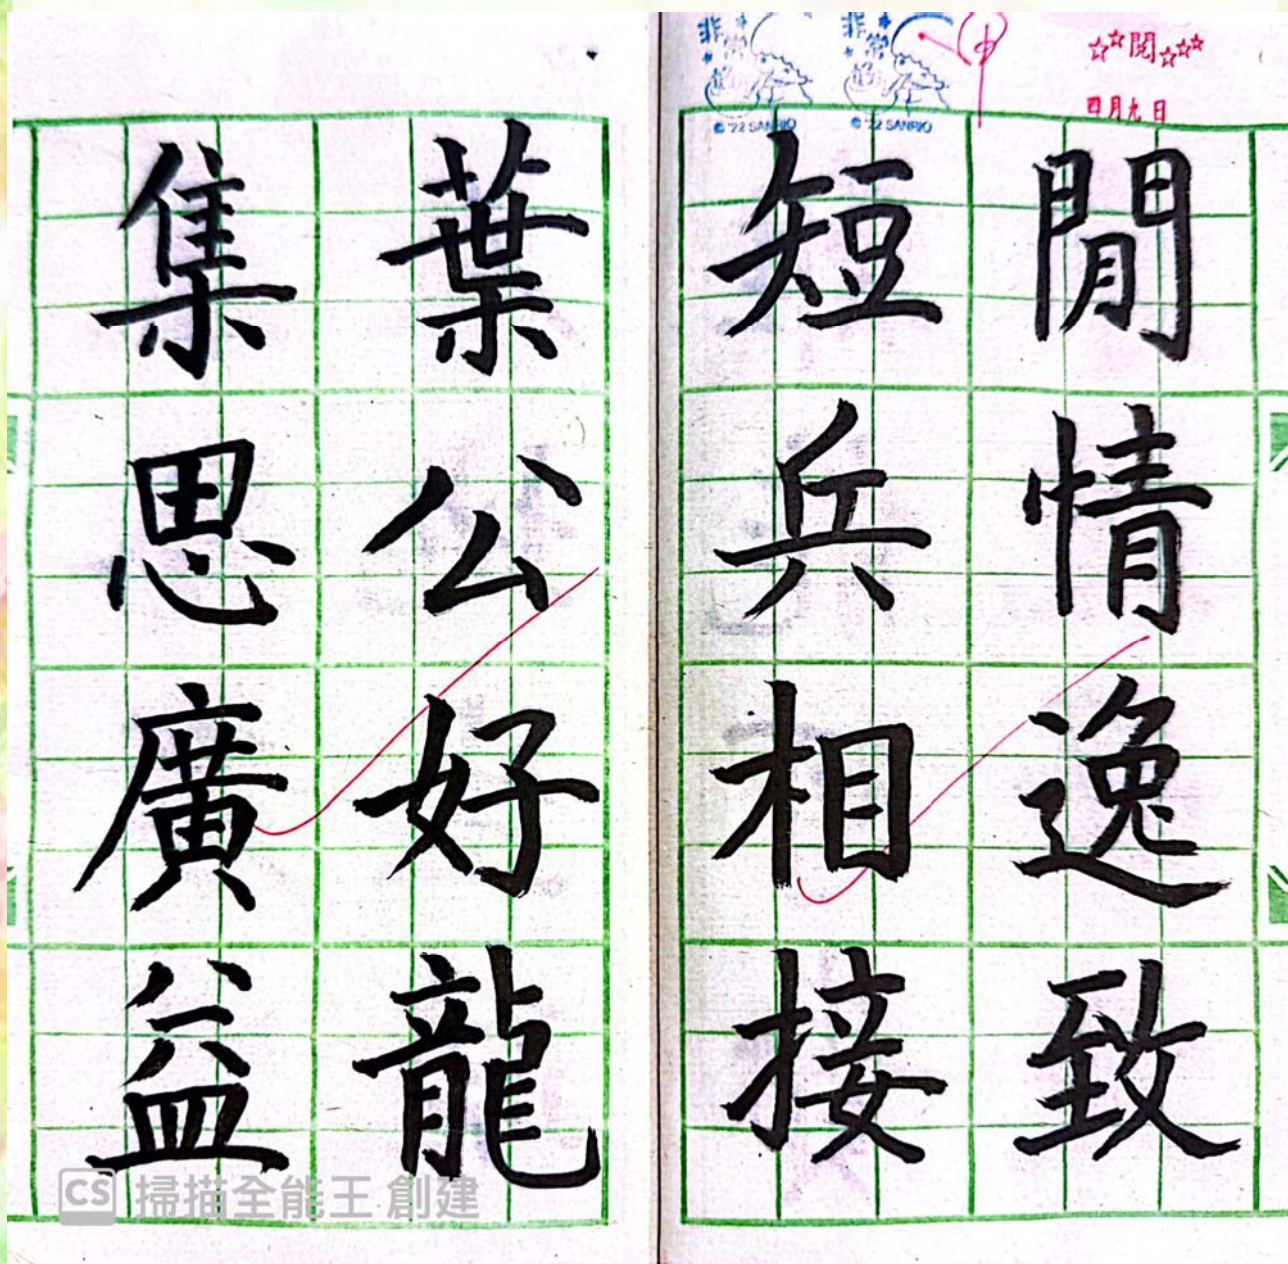 ☆☆閱☆☆☆
四月九日
甲
非常
© '22 SANRIO
非常
© '22 SANRIO
閒情逸致
短兵相接
葉公好龍
集思廣益
CS 掃描全能王 創建